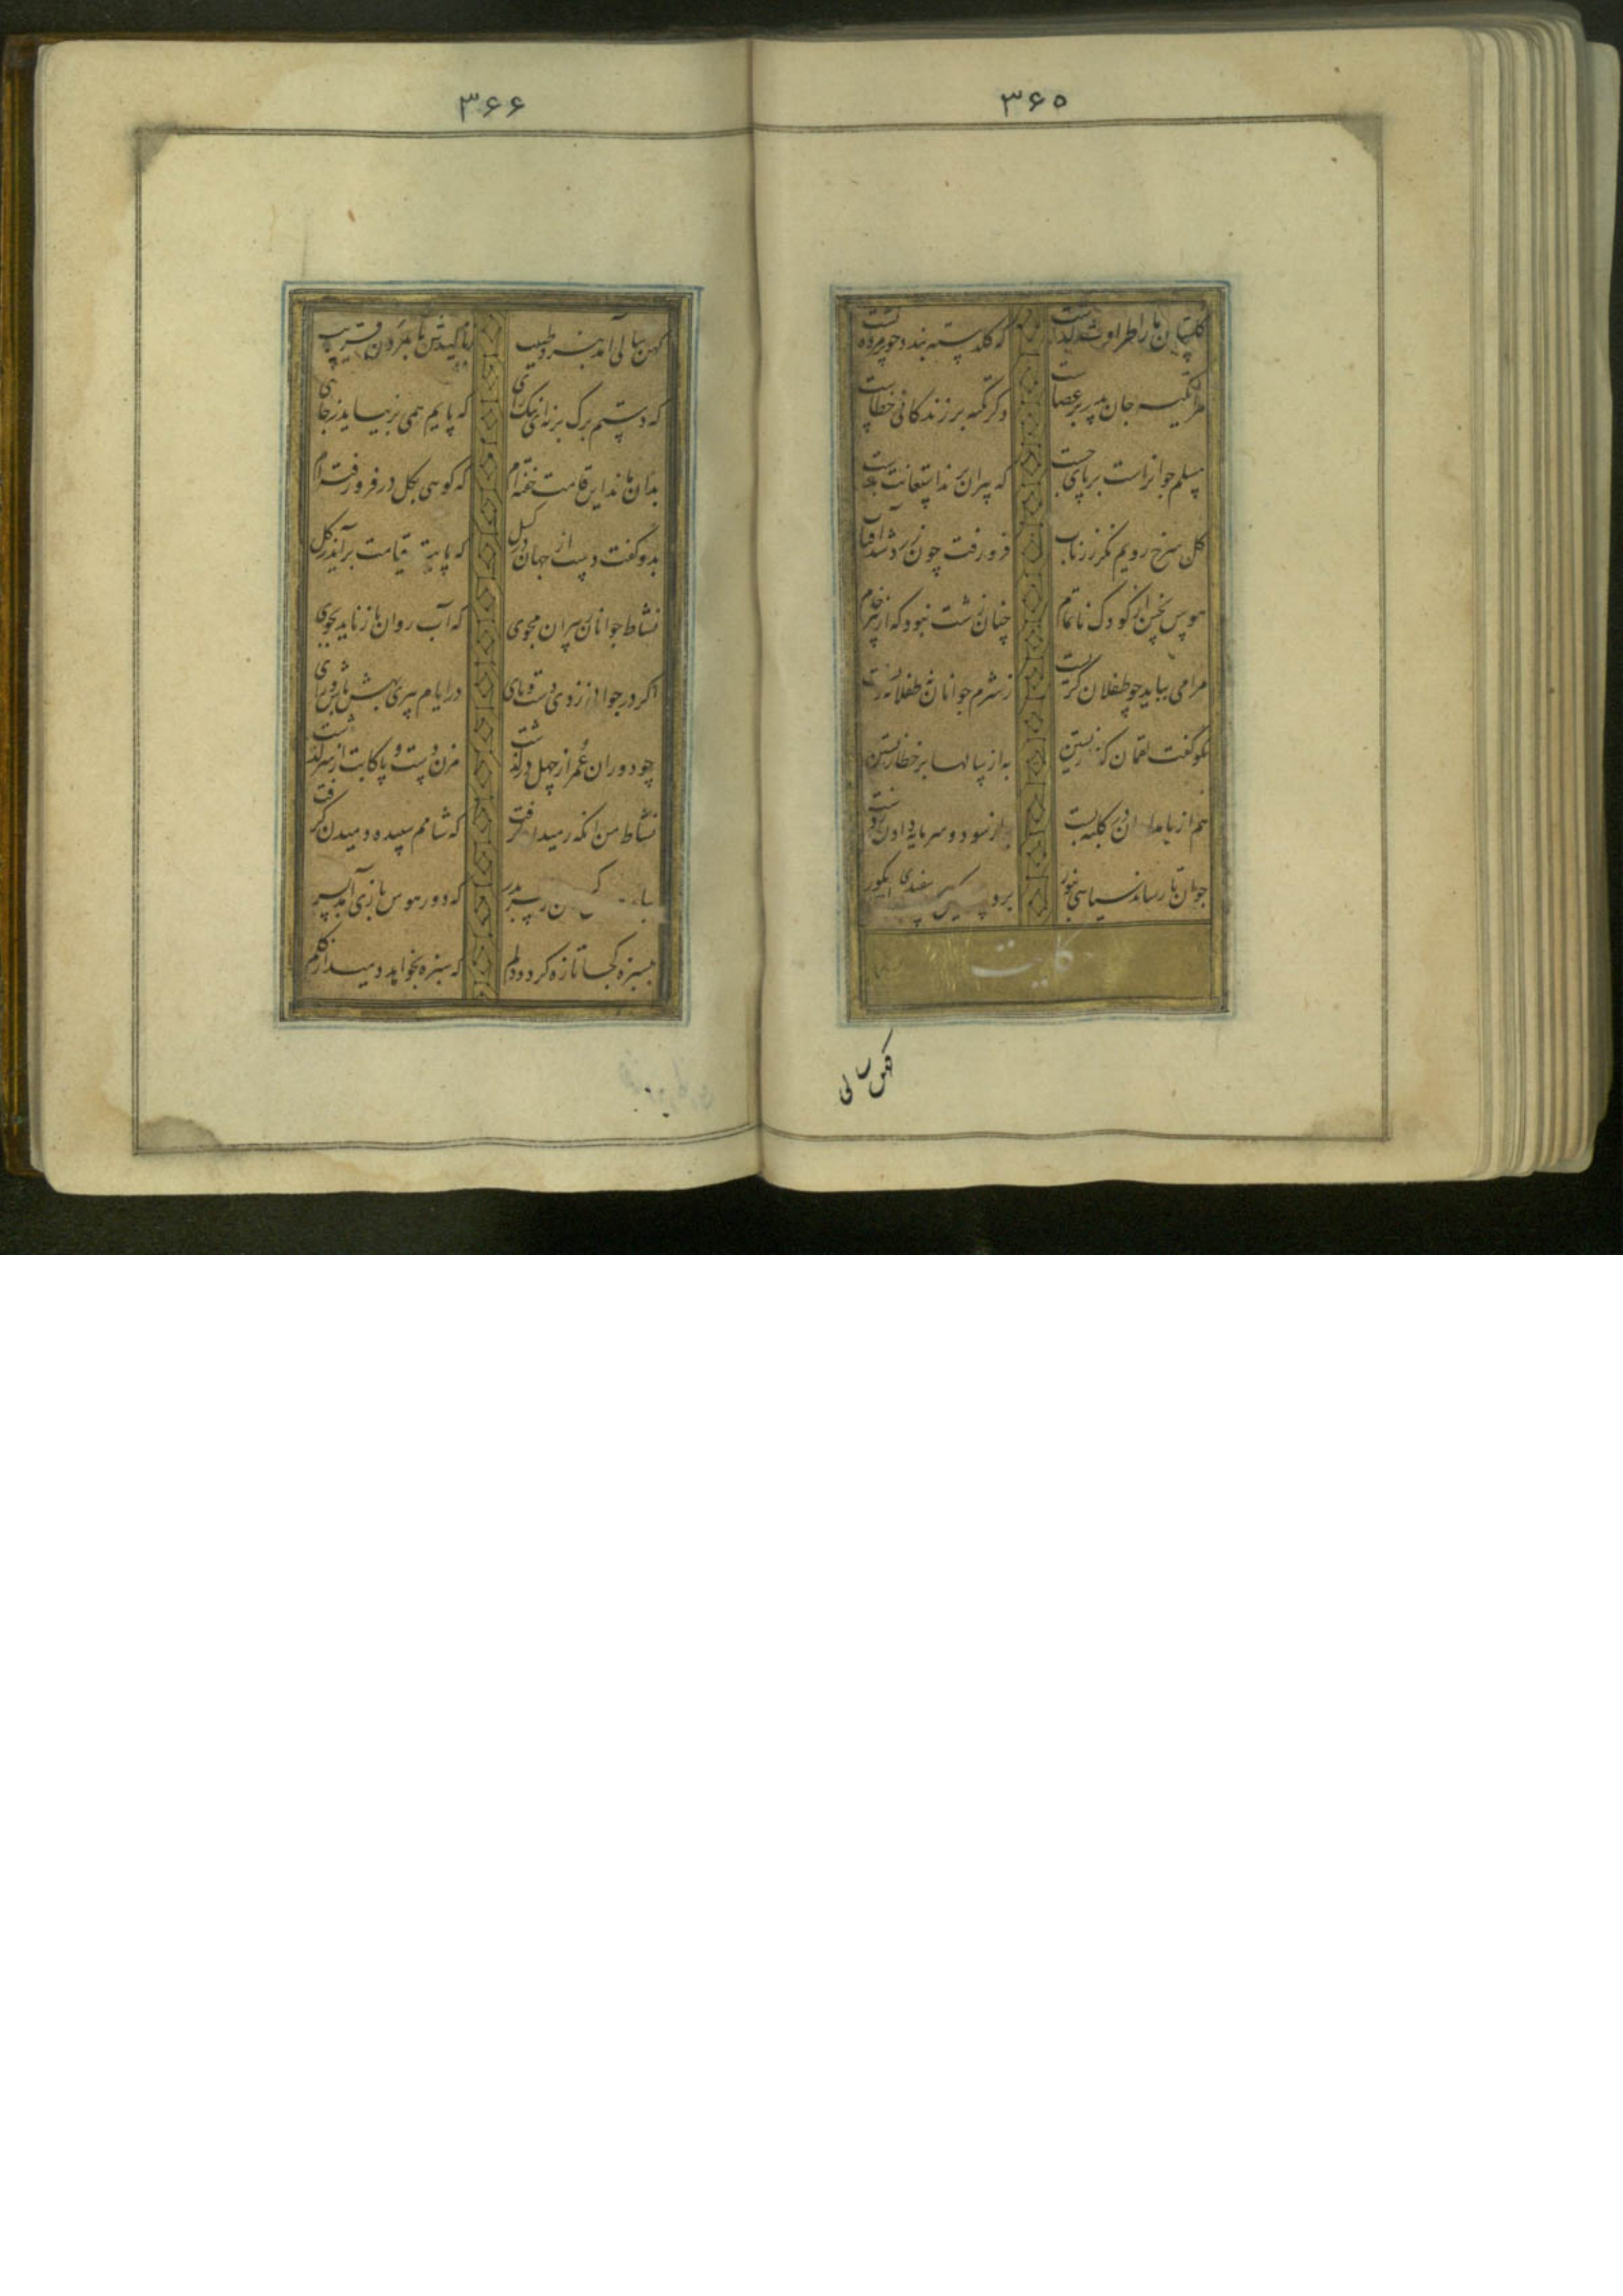 ۳۶۵
گلستان ما را طراوت گذشت که گلدسته بندد چو پژمرده گشت
مرا تکیه جان پدر بر عصاست دگر تکیه بر زندگانی خطاست
مسلم جوانراست بر پای جست که پیران برند استعانت بدست
گل سرخ رویم نگر زر ناب فرو رفت چون زرد شد آفتاب
هوس پختن از کودک ناتمام چنان زشت نبود که از پیر خام
مرا می بباید چو طفلان گریست ز شرم جوانان نه طفلانه زیست
نکو گفت لقمان که نازیستن به از سالها بر خطا زیستن
هم از بامدادان در کلبه بست به از سود و سرمایه دادن ز دست
جوان تا رساند سیاهی بنور برد پیر مسکین سفیدی بگور
حکایت
کهن سالی
۳۶۶
کهن سالی آمد بنزد طبیب ز نالیدنش تا بمردن قریب
که دستم برگ بر نه ای نیک رای که پایم همی بر نیاید ز جای
بدان ماند این قامت خفته ام که گویی بگل در فرو رفته ام
بدو گفت دست از جهان در گسل که پایت قیامت برآید ز گل
نشاط جوانان ز پیران مجوی که آب روان باز ناید بجوی
اگر در جوانی زدی دست و پای در ایام پیری بهش باش و رای
چو دوران عمر از چهل در گذشت مزن دست و پا کابت از سر گذشت
نشاط من آنگه رمیدن گرفت که شامم سپیده دمیدن گرفت
بباید هوس کردن از سر بدر که دور هوس بازی آمد بسر
بسبزه کجا تازه گردد دلم که سبزه بخواهد دمید از گلم